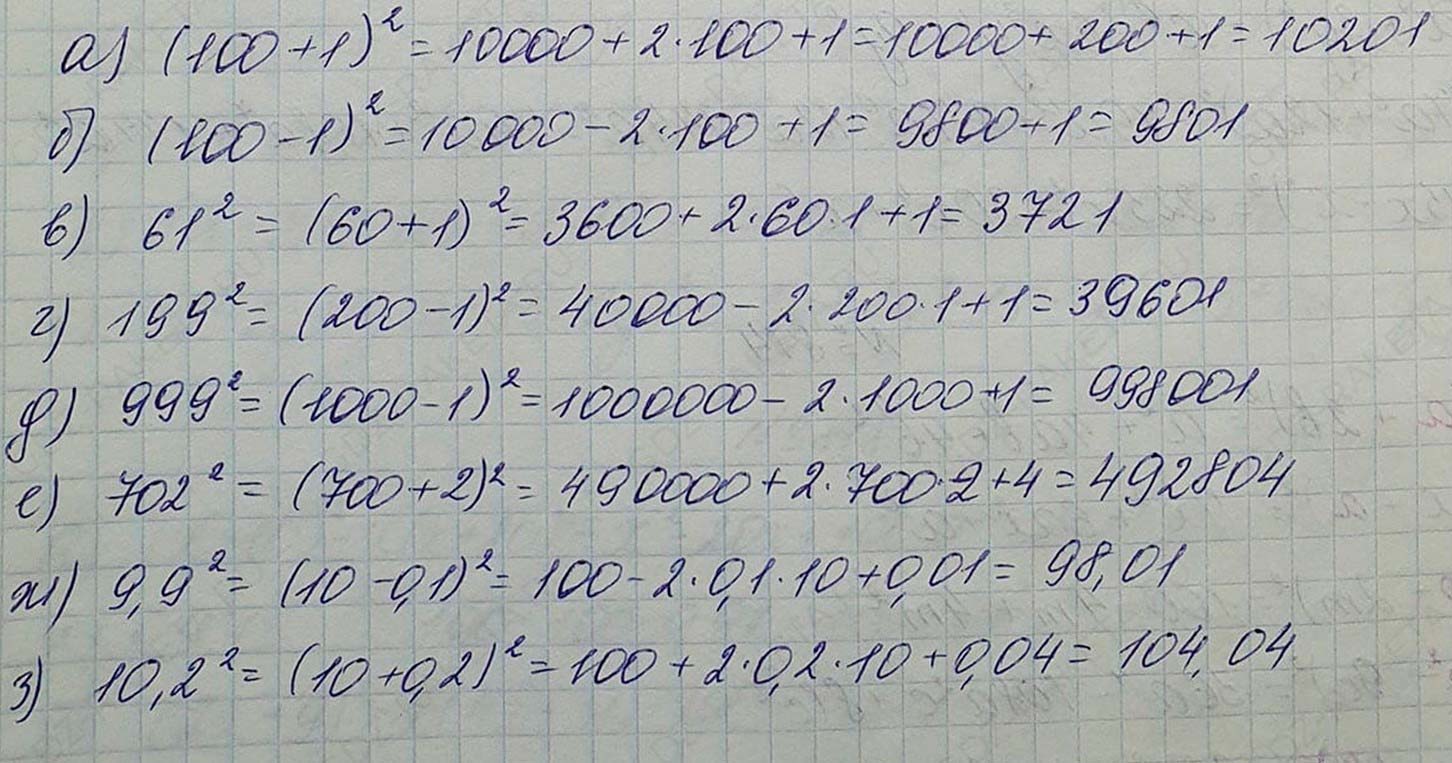 а) (100+1)² = 10000 + 2·100 + 1 = 10000 + 200 + 1 = 10201
б) (100-1)² = 10000 - 2·100 + 1 = 9800 + 1 = 9801
в) 61² = (60+1)² = 3600 + 2·60·1 + 1 = 3721
г) 199² = (200-1)² = 40000 - 2·200·1 + 1 = 39601
д) 999² = (1000-1)² = 1000000 - 2·1000 + 1 = 998001
е) 702² = (700+2)² = 490000 + 2·700·2 + 4 = 492804
ж) 9,9² = (10-0,1)² = 100 - 2·0,1·10 + 0,01 = 98,01
з) 10,2² = (10+0,2)² = 100 + 2·0,2·10 + 0,04 = 104,04